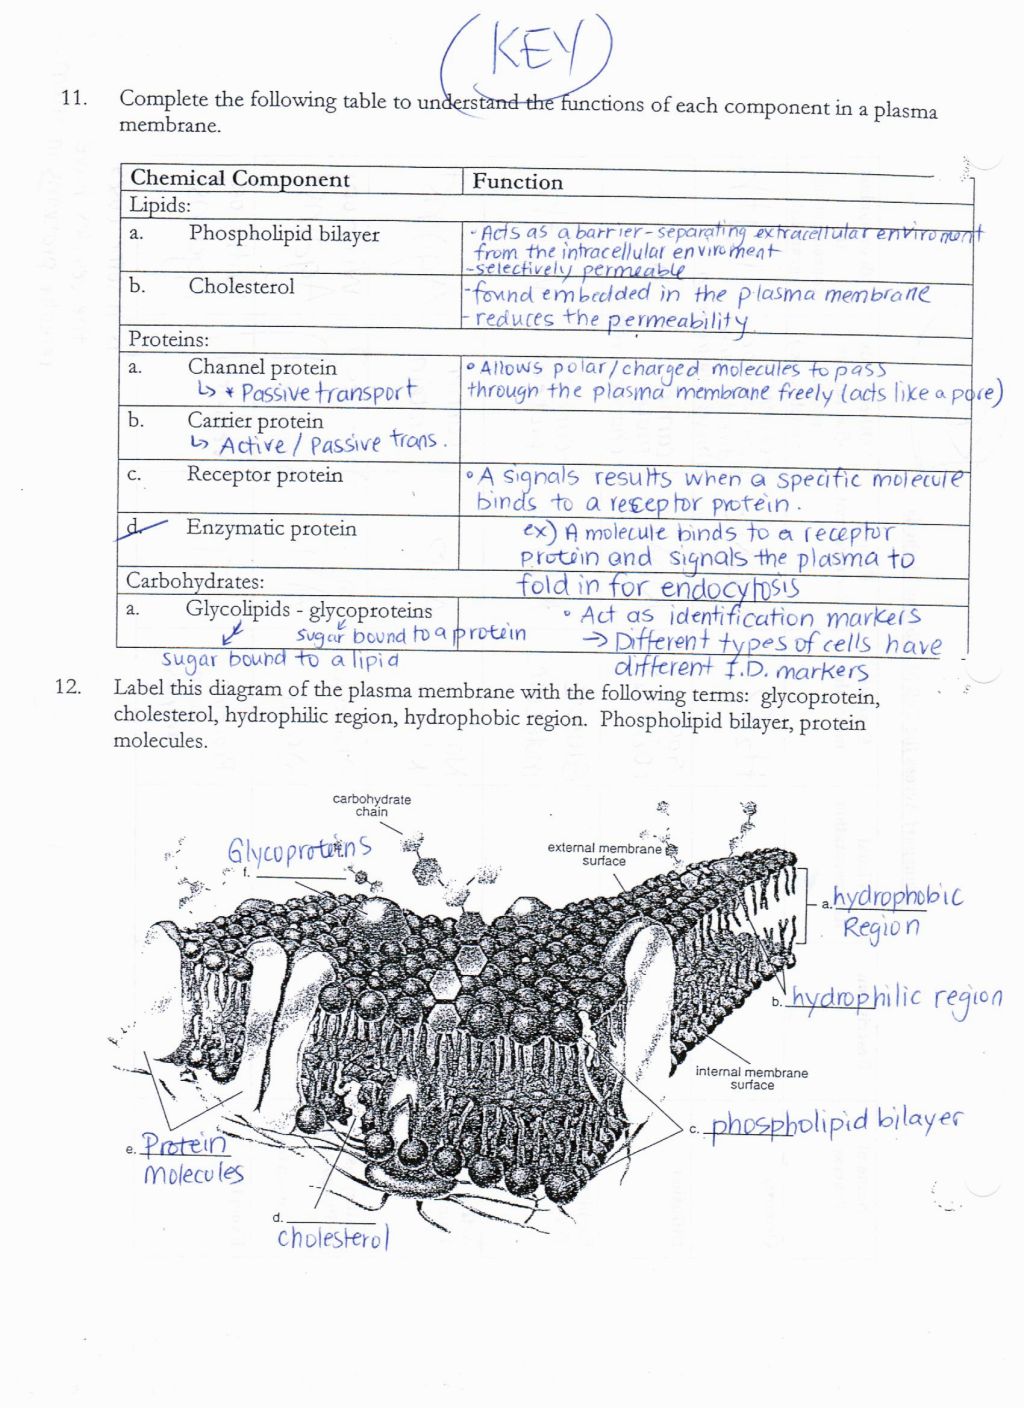 (KEY)
11. Complete the following table to understand the functions of each component in a plasma
membrane.
Chemical Component Function
Lipids:
a. Phospholipid bilayer - Acts as a barrier - separating extracellular enviroment
from the intracellular enviroment
- selectively permeable
b. Cholesterol - found embedded in the plasma membrane
- reduces the permeability
Proteins:
a. Channel protein • Allows polar/charged molecules to pass
↳ * Passive transport through the plasma membrane freely (acts like a pore)
b. Carrier protein
↳ Active / Passive trans.
c. Receptor protein • A signals results when a specific molecule
binds to a receptor protein.
d. Enzymatic protein ex) A molecule binds to a receptor
protein and signals the plasma to
Carbohydrates: fold in for endocytosis
a. Glycolipids - glycoproteins • Act as identification markers
sugar bound to a protein → Different types of cells have
sugar bound to a lipid different I.D. markers
12. Label this diagram of the plasma membrane with the following terms: glycoprotein,
cholesterol, hydrophilic region, hydrophobic region. Phospholipid bilayer, protein
molecules.
carbohydrate
chain
Glycoproteins
f.
external membrane
surface
a. hydrophobic
Region
b. hydrophilic region
internal membrane
surface
c. phospholipid bilayer
e. Protein
Molecules
d.
cholesterol